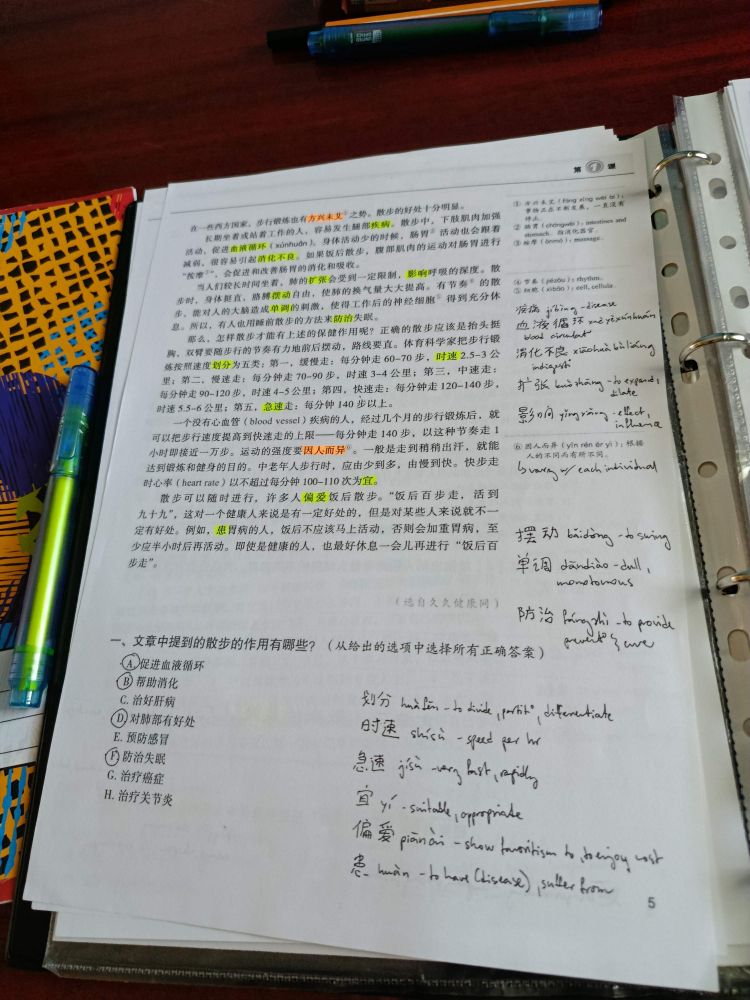 第1课
在一些西方国家，步行锻炼也有方兴未艾①之势。散步的好处十分明显。
长期坐着或站着工作的人，容易发生腿部疾病。散步中，下肢肌肉加强
活动，促进血液循环（xúnhuán）。身体活动少的时候，肠胃②活动也会跟着
减弱，很容易引起消化不良。如果饭后散步，腹部肌肉的运动对肠胃进行
“按摩③”，会促进和改善肠胃的消化和吸收。
当人们较长时间坐着，肺的扩张会受到一定限制，影响呼吸的深度。散
步时，身体挺直，胳膊摆动自由，使肺的换气量大大提高。有节奏④的散
步，能对人的大脑造成单调的刺激，使得工作后的神经细胞⑤得到充分休
息。所以，有人也用睡前散步的方法来防治失眠。
那么，怎样散步才能有上述的保健作用呢？正确的散步应该是抬头挺
胸，双臂要随步行的节奏有力地前后摆动，路线要直。体育科学家把步行锻
炼按照速度划分为五类：第一，缓慢走：每分钟走 60–70 步，时速 2.5–3 公
里；第二，慢速走：每分钟走 70–90 步，时速 3–4 公里；第三，中速走：
每分钟走 90–120 步，时速 4–5 公里；第四，快速走：每分钟走 120–140 步，
时速 5.5–6 公里；第五，急速走：每分钟 140 步以上。
一个没有心血管（blood vessel）疾病的人，经过几个月的步行锻炼后，就
可以把步行速度提高到快速走的上限——每分钟走 140 步，以这种节奏走 1
小时即接近一万步。运动的强度要因人而异⑥。一般是走到稍稍出汗，就能
达到锻炼和健身的目的。中老年人步行时，应由少到多，由慢到快。快步走
时心率（heart rate）以不超过每分钟 100–110 次为宜。
散步可以随时进行，许多人偏爱饭后散步。“饭后百步走，活到
九十九”，这对一个健康人来说是有一定好处的，但是对某些人来说就不一
定有好处。例如，患胃病的人，饭后不应该马上活动，否则会加重胃病，至
少应半小时后再活动。即使是健康的人，也最好休息一会儿再进行“饭后百
步走”。
（选自久久健康网）
① 方兴未艾（fāng xīng wèi ài）：
事物正在不断发展，一直没有
停止。
② 肠胃（chángwèi）：intestines and
stomach. 指消化器官。
③ 按摩（ànmó）：massage.
④ 节奏（jiézòu）：rhythm.
⑤ 细胞（xìbāo）：cell, cellula.
疾病 jíbìng - disease
血液循环 xuèyèxúnhuán
blood circulat°
消化不良 xiāohuàbùliáng
indigest°
扩张 kuòzhāng - to expand,
dilate
影响 yǐngxiǎng - effect,
influence
⑥ 因人而异（yīn rén ér yì）：根据
人的不同而有所不同。
↳ vary w/ each individual
摆动 bǎidòng - to swing
单调 dāndiào - dull,
monotonous
防治 fángzhì - to provide
prevent° & cure
一、文章中提到的散步的作用有哪些？（从给出的选项中选择所有正确答案）
A. 促进血液循环
B. 帮助消化
C. 治好肝病
D. 对肺部有好处
E. 预防感冒
F. 防治失眠
G. 治疗癌症
H. 治疗关节炎
划分 huàfēn - to divide, partit°, differentiate
时速 shísù - speed per hr
急速 jísù - very fast, rapidly
宜 yí - suitable, appropriate
偏爱 piān'ài - show favoritism to, to enjoy most
患 huàn - to have (disease), suffer from
5